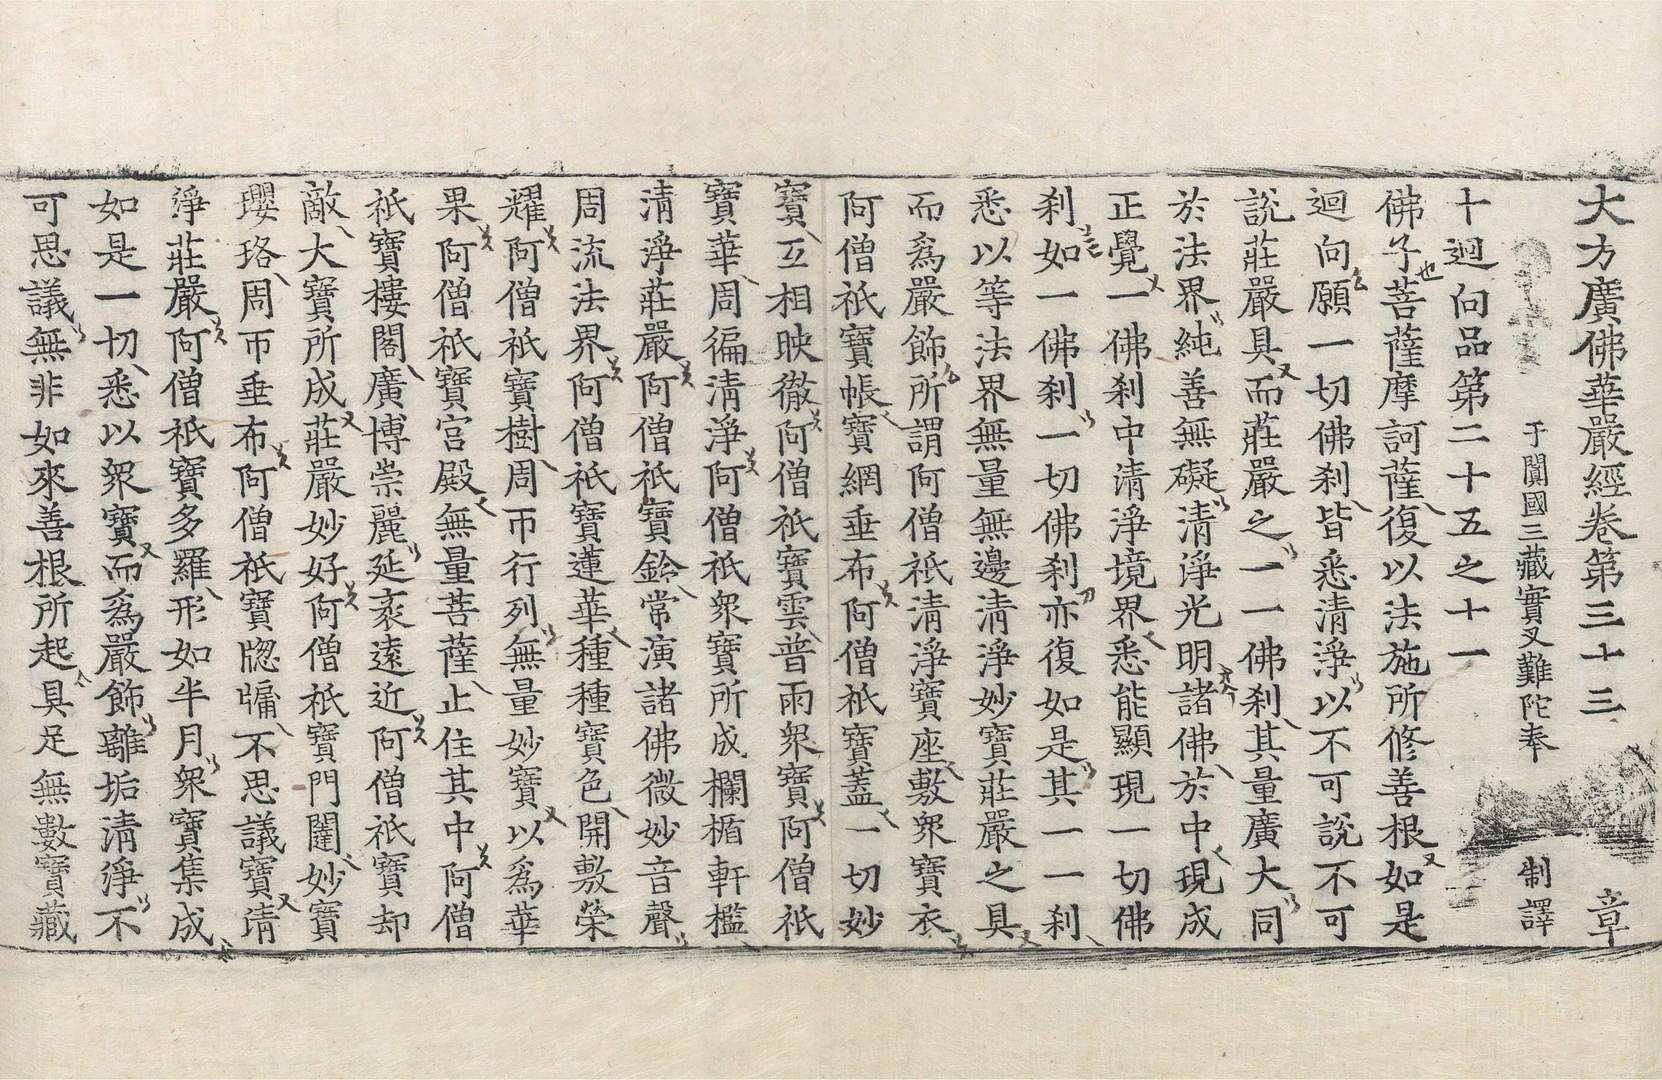 大方廣佛華嚴經卷第三十三 章
于闐國三藏實叉難陀奉 制譯
十迴向品第二十五之十一
佛子菩薩摩訶薩復以法施所修善根如是
迴向願一切佛刹皆悉清淨以不可說不可
說莊嚴具而莊嚴之一一佛刹其量廣大同
於法界純善無礙清淨光明諸佛於中現成
正覺一佛刹中清淨境界悉能顯現一切佛
刹如一佛刹一切佛刹亦復如是其一一刹
悉以等法界無量無邊清淨妙寶莊嚴之具
而爲嚴飾所謂阿僧祇清淨寶座敷衆寶衣
阿僧祇寶帳寶網垂布阿僧祇寶蓋一切妙
寶互相映徹阿僧祇寶雲普雨衆寶阿僧祇
寶華周徧清淨阿僧祇衆寶所成欄楯軒檻
清淨莊嚴阿僧祇寶鈴常演諸佛微妙音聲
周流法界阿僧祇寶蓮華種種寶色開敷榮
耀阿僧祇寶樹周帀行列無量妙寶以爲華
果阿僧祇寶宮殿無量菩薩止住其中阿僧
祇寶樓閣廣博崇麗延袤遠近阿僧祇寶却
敵大寶所成莊嚴妙好阿僧祇寶門闥妙寶
瓔珞周帀垂布阿僧祇寶牎牖不思議寶清
淨莊嚴阿僧祇寶多羅形如半月衆寶集成
如是一切悉以衆寶而爲嚴飾離垢清淨不
可思議無非如來善根所起具足無數寶藏